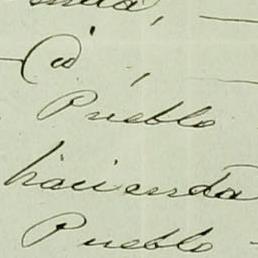 Id ,
Pueblo
hacienda
Pueblo